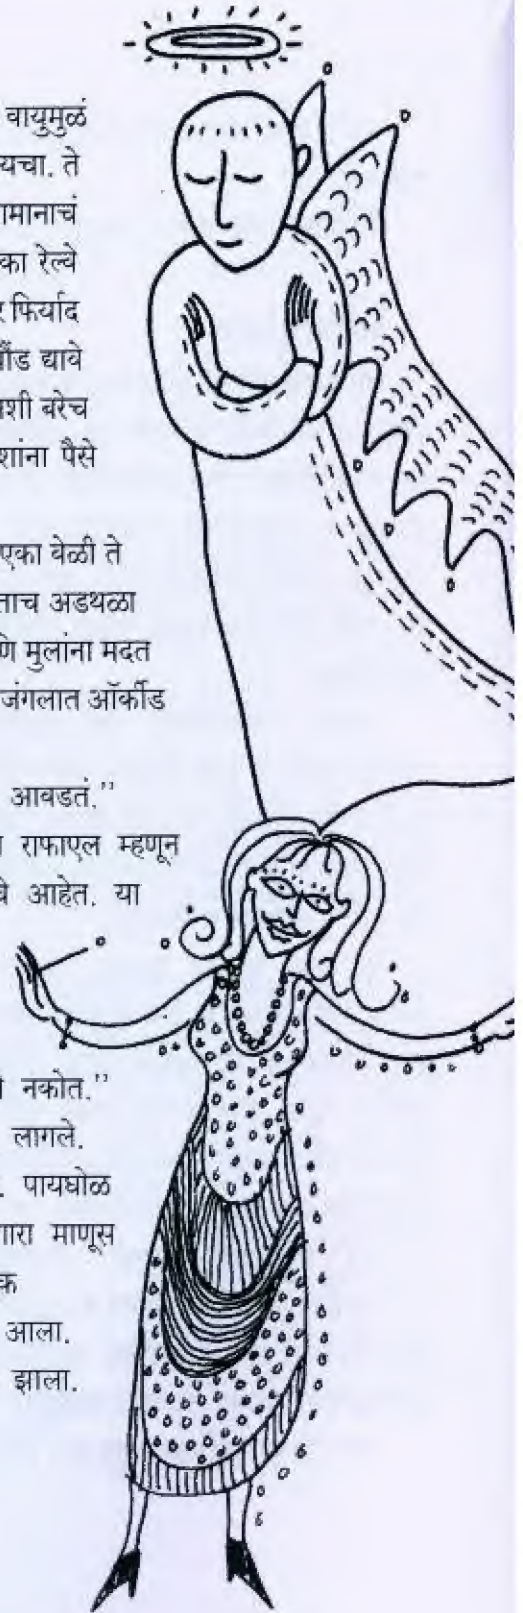 वायुमुळं
यचा. ते
ामानाचं
का रेल्वे
र फिर्याद
ौंड द्यावे
शी बरेच
शांना पैसे
एका वेळी ते
ताच अडथळा
णि मुलांना मदत
जंगलात ऑर्कीड
आवडतं.”
राफाएल म्हणून
वे आहेत. या
नकोत.”
लागले.
. पायघोळ
गारा माणूस
क
आला.
झाला.